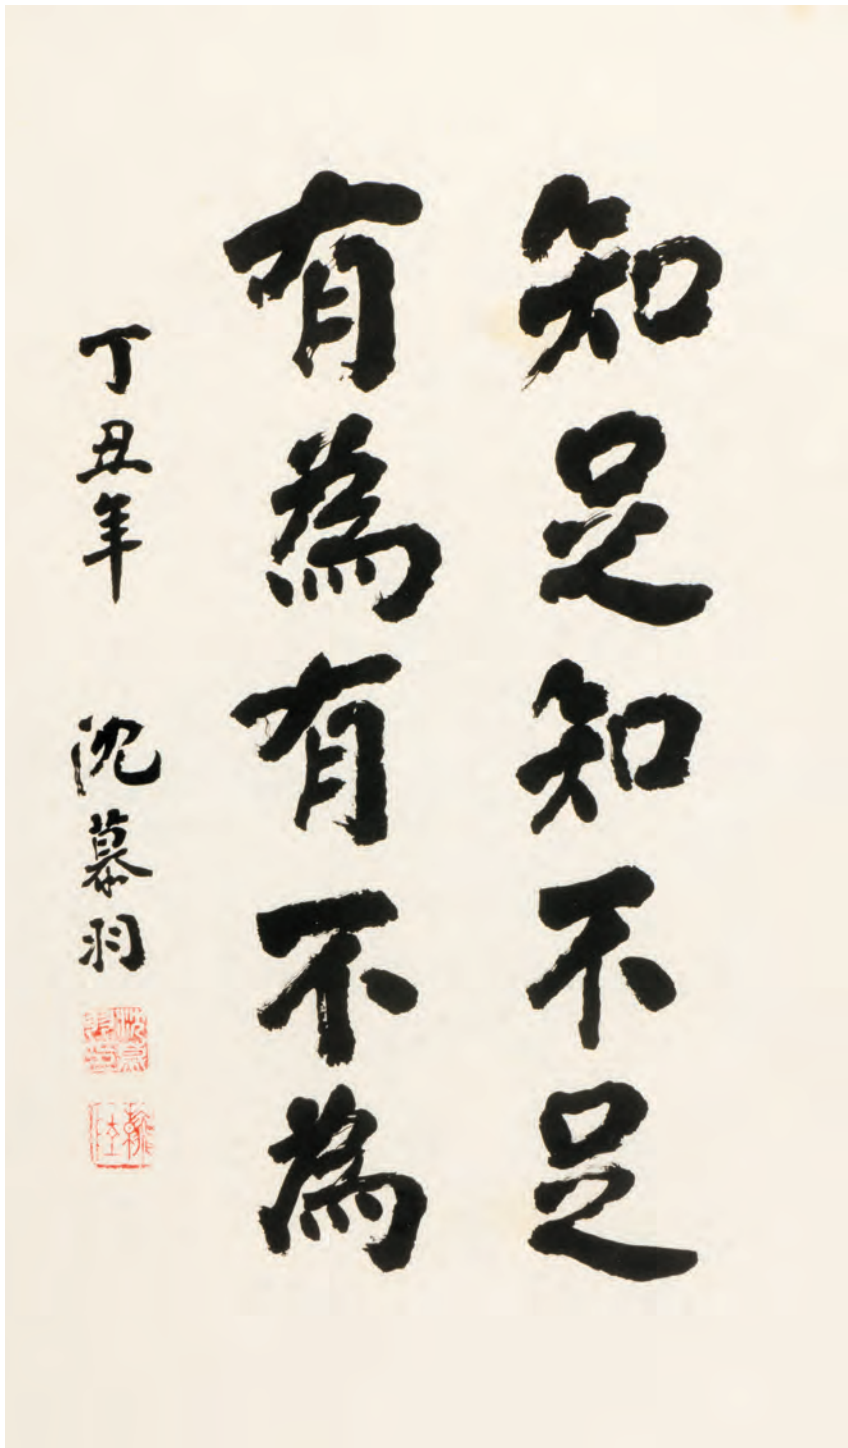 知足知不足
有為有不為
丁丑年 沈慕羽